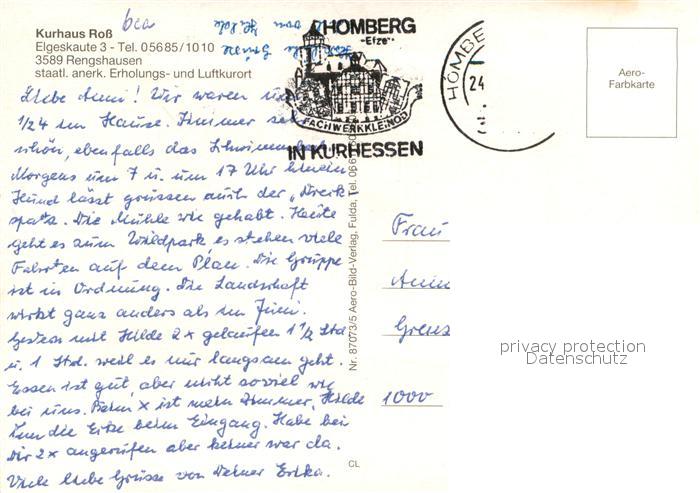 Kurhaus Roß
Elgeskaute 3 - Tel. 05685/1010
3589 Rengshausen
staatl. anerk. Erholungs- und Luftkurort
HOMBERG
-Efze-
FACHWERKKLEINOD
IN KURHESSEN
HOMBE
24
Aero-
Farbkarte
Liebe Anni! Wir waren
1/24 im Hause. Zimmer
schön, ebenfalls das Schwimmbad
Morgens um 7 u. um 17 Uhr hinein
Hund lässt grüssen auch der „Dreck
spatz. Die Mühle wie gehabt. Heute
geht es zum Wildpark, es stehen viele
Fahrten auf dem Plan. Die Gruppe
ist in Ordnung. Die Landschaft
wirkt ganz anders als im Juni.
Gestern mit Hilde 2x gelaufen 1 1/2 Std
u. 1 Std. weil es nur langsam geht.
Essen ist gut, aber nicht soviel wie
bei uns. Beim X ist mein Zimmer, Hilde
um die Ecke beim Eingang. Habe bei
Dir 2x angerufen aber keiner war da.
Viele liebe Grüsse von Deiner Erika.
Nr. 87073/5 Aero-Bild-Verlag, Fulda, Tel. 0661
CL
Frau
Anni
1000
privacy protection
Datenschutz